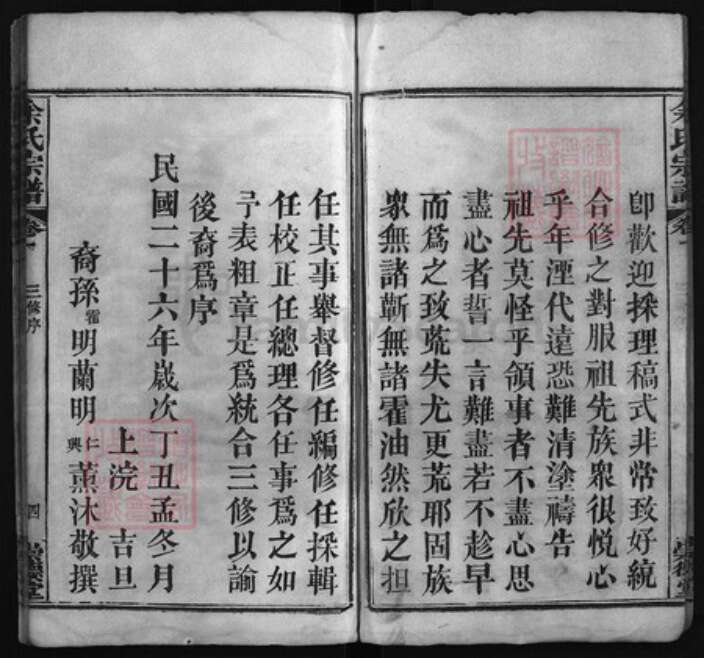 余氏宗譜 卷一
卽歡迎採理稿式非常致好統
合修之對服祖先族衆很悦心
乎年湮代遠恐難清塗禱告
祖先莫怪乎領事者不盡心思
盡心者誓一言難盡若不趁早
而爲之致荒失尤更荒耶固族
衆無諸靳無諸霍油然欣之担
任其事舉督修任編修任採輯
任校正任總理各任事爲之如
予表粗章是爲統合三修以諭
後裔爲序
民國二十六年歲次丁丑孟冬月
上浣 吉旦
裔孫霍明蘭明仁興薰沐敬撰
余氏宗譜 卷一 三修序 四